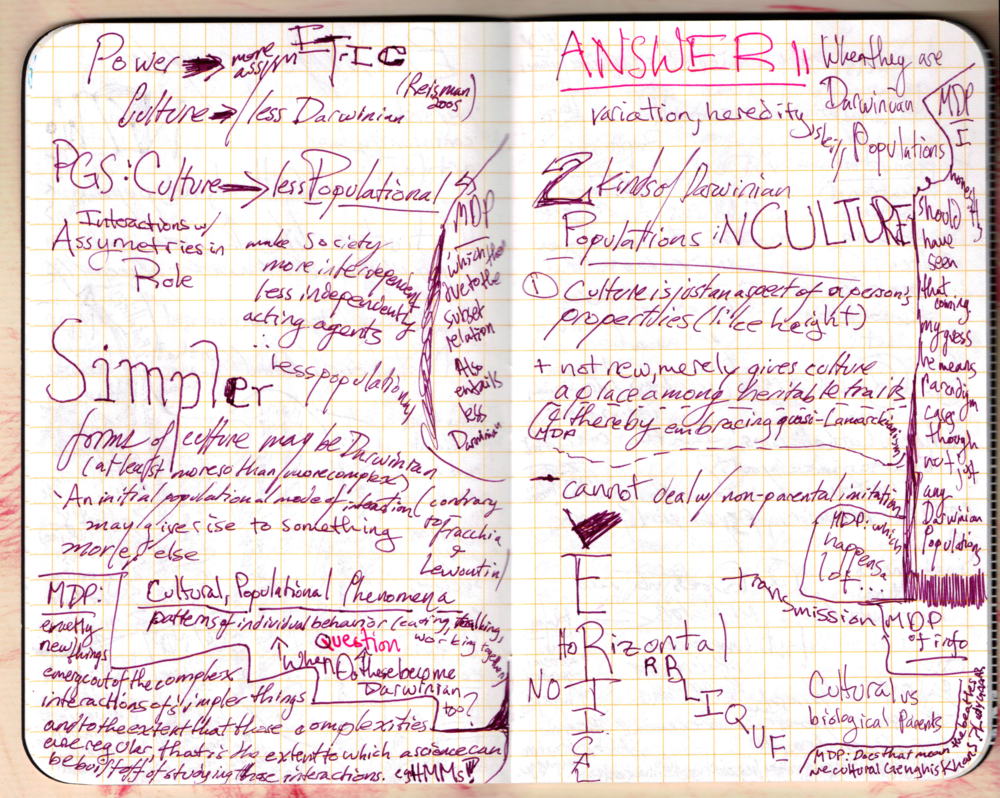 Power → more assym ETRIC
Culture → less Darwinian
(Reisman
2005)
PGS: Culture → less Populational
Interactions w/
Assymetries in
Role
make society
more
less independently
acting agents
∴
less populationy
MDP
which
due to the
subset
relation
Also
entails
less
Darwinian
Simpler
forms of culture may be Darwinian
(at least more so than more complex)
- An initial populational mode of interaction (contrary
may give rise to something
more/else
to Fracchia
&
Lewontin)
MDP:
new things
emerge out of the complex
interactions of simpler things
and to the extent that those complexities
are regular, that is the extent to which a science can
be built off of studying those interactions. eg HMMs!!
Cultural, Populational Phenomena
patterns of individual behavior (eating, talking,
working together)
Question
↑ When Do these become
Darwinian
too?
ANSWER ||
When they are
Darwinian
Populations
variation, heredity,
2 kinds of Darwinian
Populations iN CULTURE
① Culture is just an aspect of a person's
propertdies (like height)
+ not new, merely gives culture
a place among heritable traits
(& thereby embracing quasi-Lamarckianism)
MDP
- cannot deal w/ non-parental imitation
MDP: which
happens a
lot...
MDP
I
honestly
should
have
seen
that
coming
my guess
he means
Paradigm
cases though
not just
any
Darwinian
Populations
transmission MDP
of info
HoRizontal
NO
VERTICAL
OBLIQUE
Cultural vs
biological Parents
MDP: Does that mean the beatles
are cultural Genghis Khans